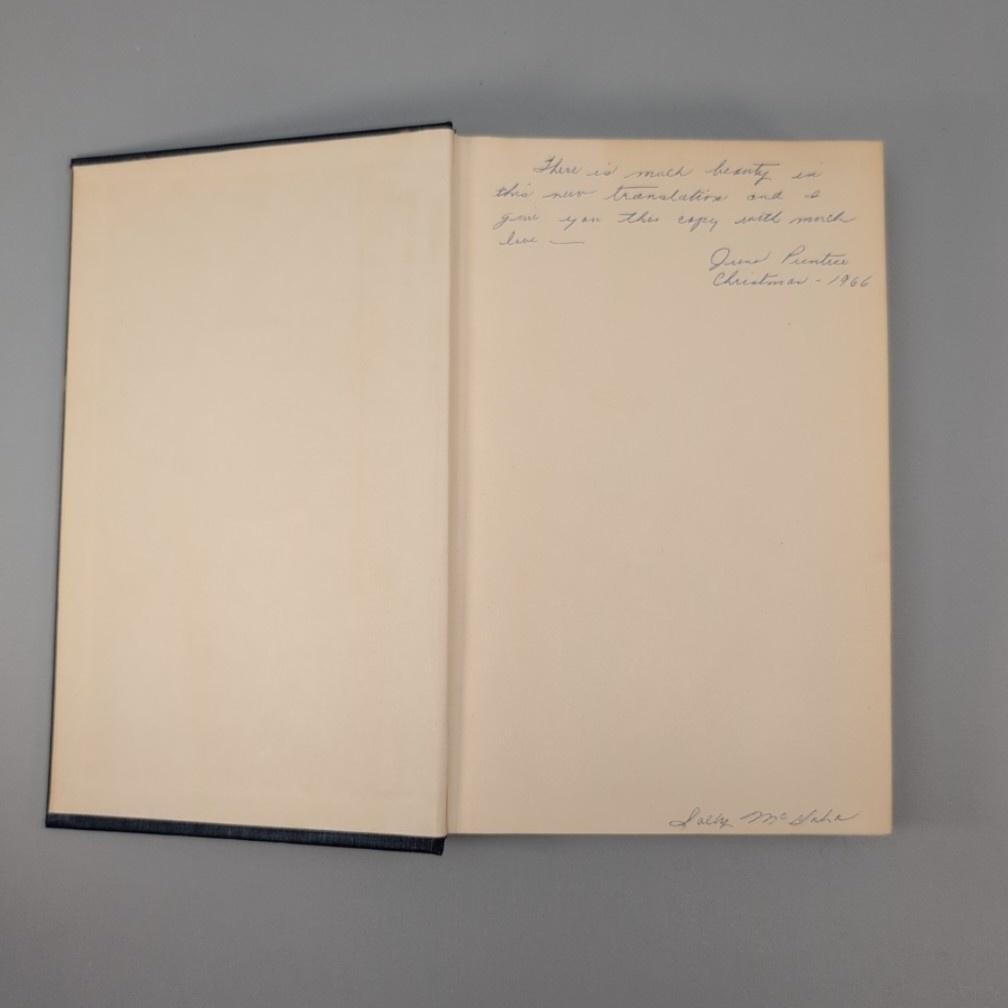 There is much beauty in
this new translation and I
give you this copy with much
love —
Prentice
Christmas - 1966
Sally